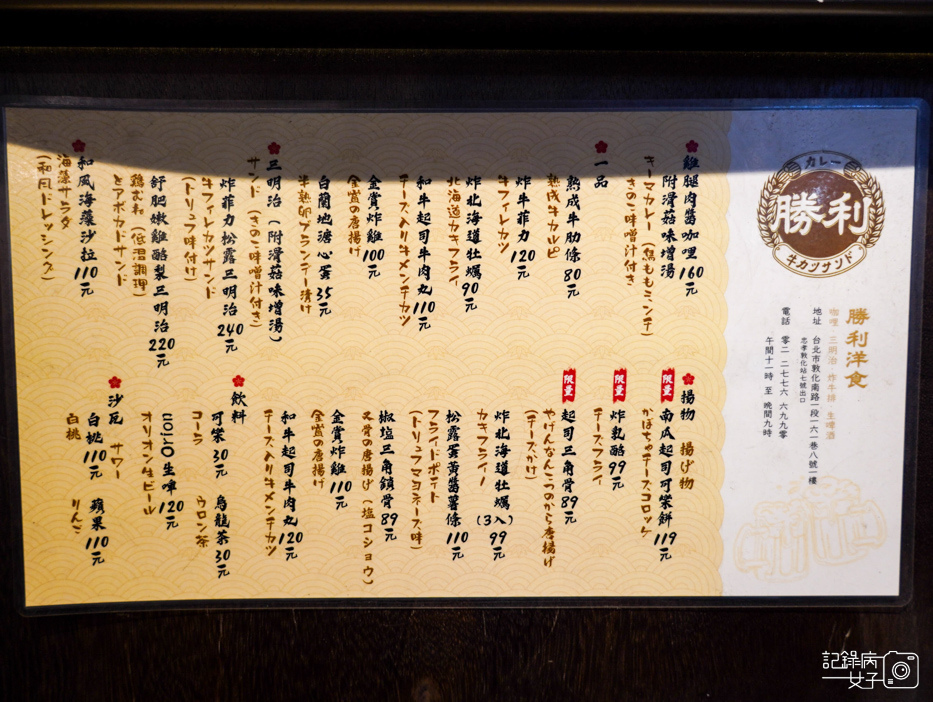 カレー
勝利
牛カツサンド
勝利洋食
咖哩 三明治 炸牛排 生啤酒
地址 台北市敦化南路一段一六一巷八號一樓
忠孝敦化站七號出口
電話 零二 二七七六 六九九零
午間十一時 至 晚間九時
雞腿肉醬咖哩160元
附滑菇味增湯
キーマカレー（鶏ももミンチ）
きのこ味噌汁付き
一品
熟成牛肋條80元
熟成牛カルビ
炸牛菲力120元
牛フィレカツ
炸北海道牡蠣90元
北海道カキフライ
和牛起司牛肉丸110元
チーズ入り牛メンチカツ
金賞炸雞100元
金賞の唐揚げ
白蘭地溏心蛋35元
半熟卵ブランデー漬け
三明治（附滑菇味增湯）
サンド（きのこ味噌汁付き）
炸菲力松露三明治240元
牛フィレカツサンド
（トリュフ味付け）
舒肥嫩雞酪梨三明治220元
鶏むね（低溫調理）
とアボカドサンド
和風海藻沙拉110元
海藻サラダ
（和風ドレッシング）
揚物 揚げ物
限量
南瓜起司可樂餅119元
かぼちゃチーズコロッケ
限量
炸乳酪99元
チーズフライ
限量
起司三角骨89元
やげんなんこつのから唐揚げ
（チーズかけ）
炸北海道牡蠣（3入）99元
カキフライー
松露蛋黃醬薯條110元
フライドポテト
（トリュフマヨネーズ味）
椒塩三角鎖骨89元
叉骨の唐揚げ（塩コショウ）
金賞炸雞110元
金賞の唐揚げ
和牛起司牛肉丸120元
チーズ入り牛メンチカツ
飲料
可樂30元 烏龍茶30元
コーラ ウロン茶
Orion生啤120元
オリオン生ビール
沙瓦 サワー
白桃110元 蘋果110元
白桃 りんご
記錄病
女子